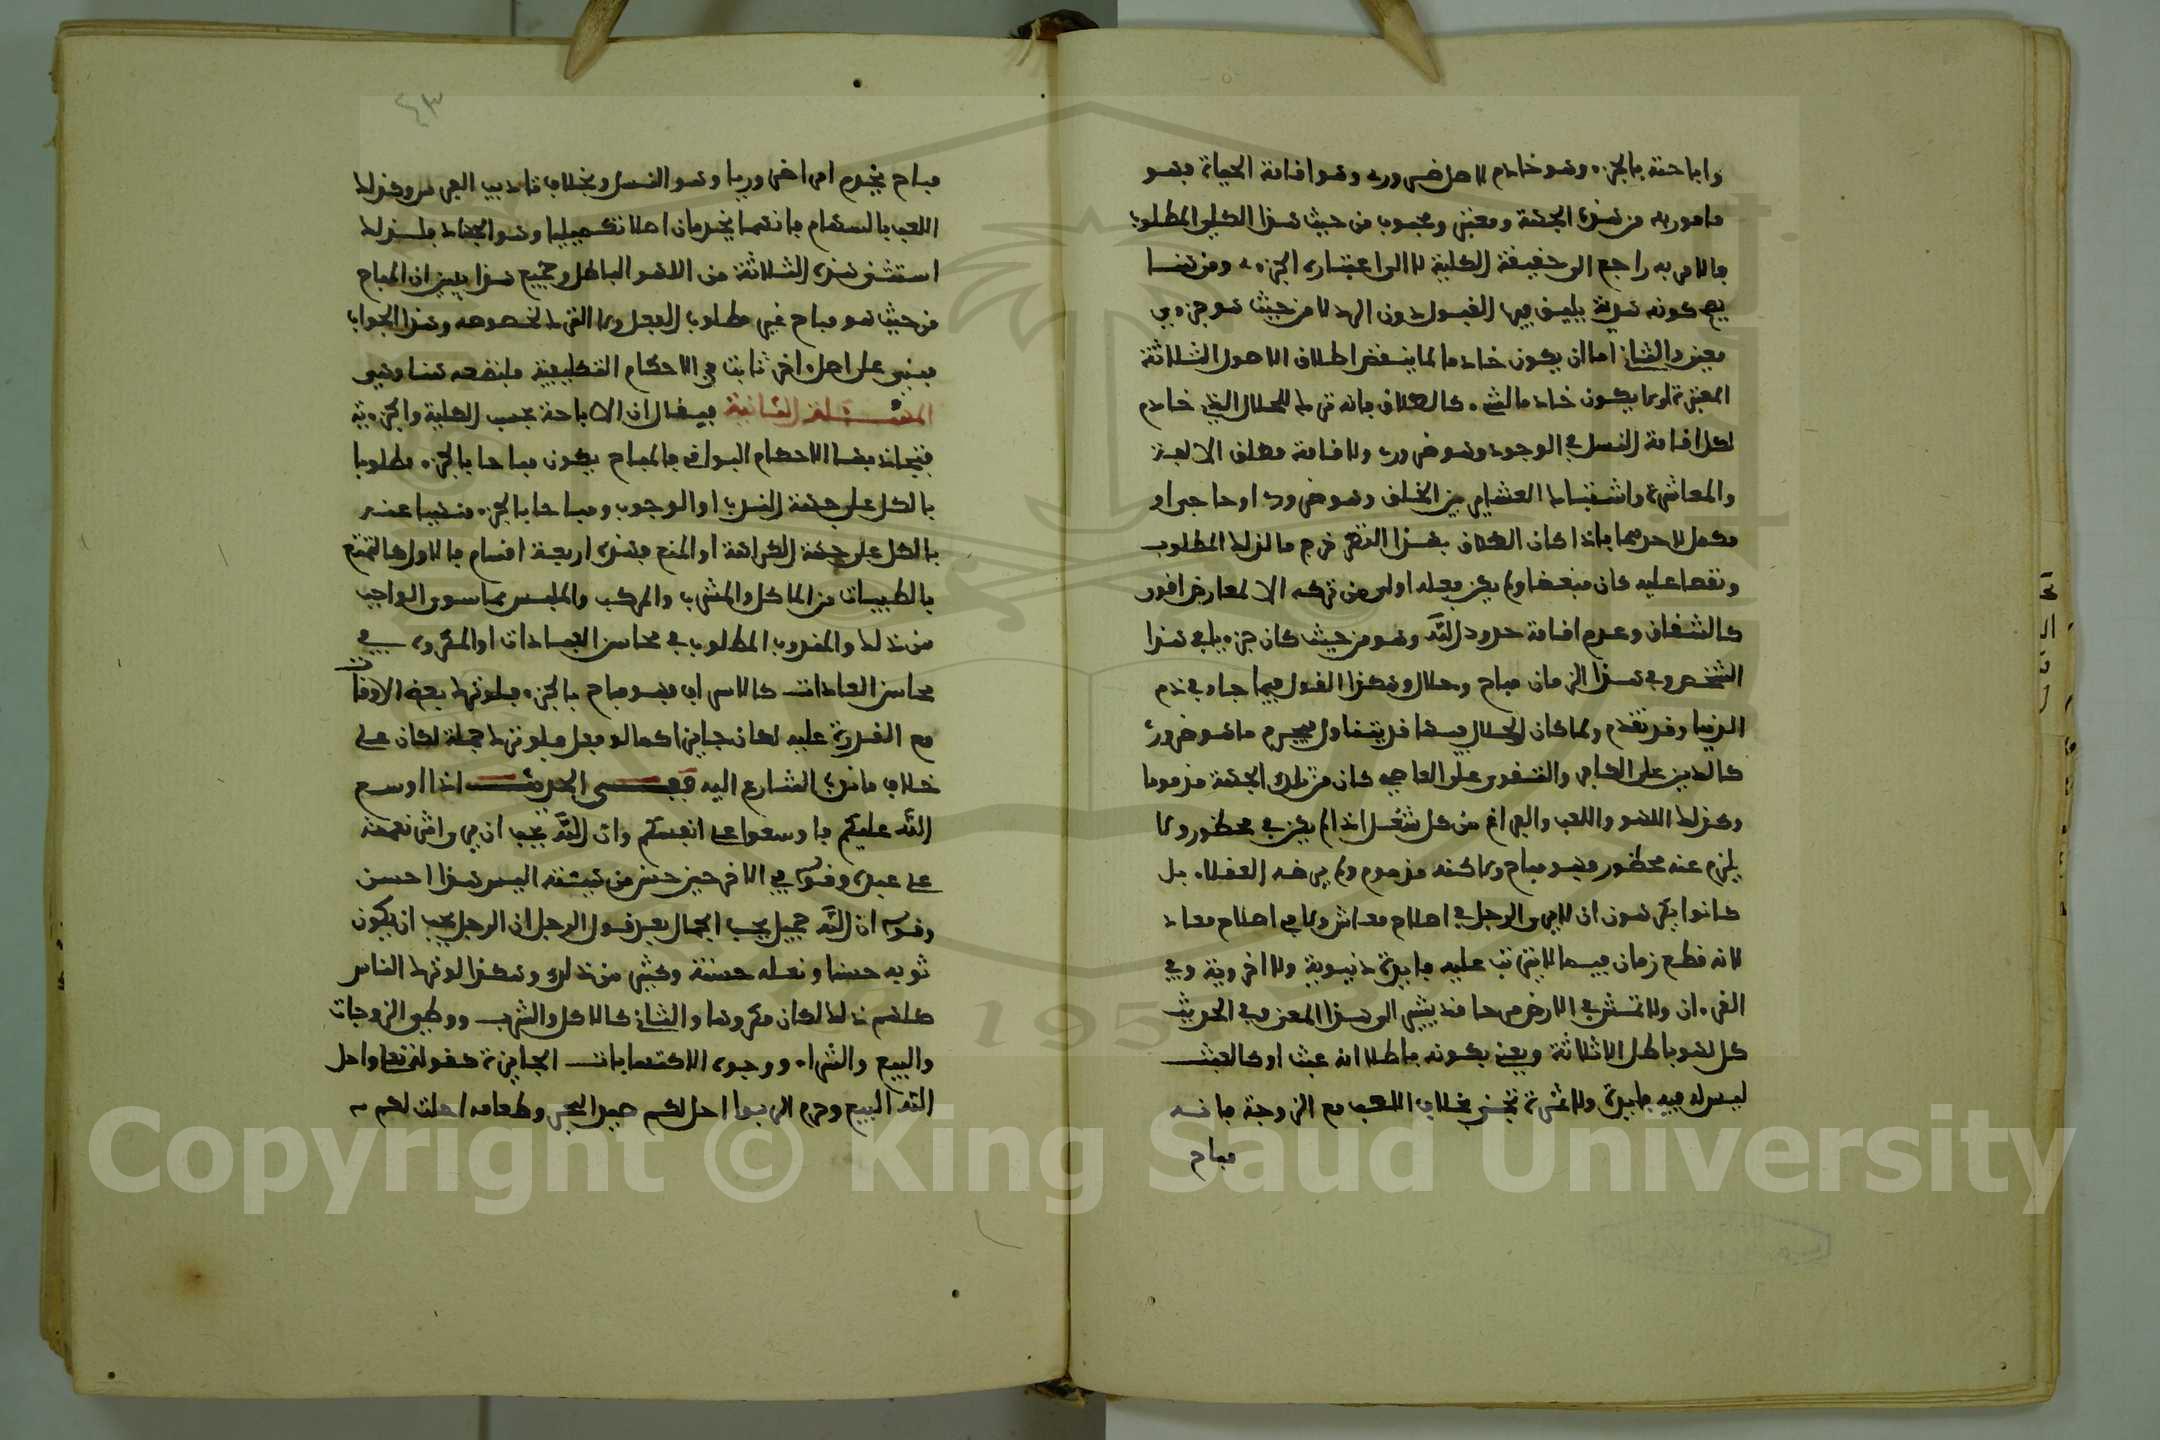 واباحته بالجزء وهو خادم لاصل ضروري وهو اقامة الحياة فهو
مامور به من هذه الجهة ومعتبر ومحبوب من حيث هذا الكلي المطلوب
فالامر به راجع الى حقيقة الكلية لا الى اعتباره الجزءي ومن هنا
يصح كونه هدية يليق فيها القبول دون الرد لا من حيث هو جزءي
معين والثاني اما ان يكون خادما لما ينقض اصلا من الاصول الثلاثة
المعتبرة او لا يكون خادما لشيء كالطلاق فانه ترك للحلال الذي خادم
لكل اقامة النسل في الوجود وهو ضروري ولاقامة مطلق الالفة
والمعاشرة واشتباك العشاير بين الخلق وهو ضروري او حاجي او
مكمل لاحدهما فاذا كان الطلاق بهذا النظر خرم ما لذلك المطلوب
ونقضا عليه كان مبغضا ولم يكن فعله اولى من تركه الا لمعارض اقوى
كالشقاق وعدم اقامة حدود الله وهو من حيث كان جزءيا في هذا
الشخص وفي هذا الزمان مباح وحلال وهكذا القول فيما جاء في ذم
الدنيا وقد تقدم ولما كان الحلال فيها قد يتناول فيخرم ما هو ضروري
كالدين على الكافر والتقوى على العاصي كان من تلك الجهة مذموما
وكذلك اللهو واللعب والفراغ من كل شغل اذا لم يكن في محظور ولا
يلزم عنه محظور فهو مباح ولكنه مذموم ولم يرضه العقلاء بل
كانوا يكرهون ان لا يرى الرجل في اصلاح معاش ولا في اصلاح معاد
لانه قطع زمان فيما لا يترتب عليه فايدة دنيوية ولا اخروية وفي
القرءان ولا تمش في الارض مرحا منه يشير الى هذا المعنى وفي الحديث
كل لهو باطل الا ثلاثة ويعني بكونه باطلا انه عبث او كالعبث
ليس له فيه فايدة ولا ثمرة تجنى بخلاف اللعب مع الزوجة فانه
مباح
٤٣
مباح يخدم امرا ضروريا وهو النسل وبخلاف تاديب الفرس وكذلك
اللعب بالسهام فانهما يخدمان اصلا تكميليا وهو الجهاد فلذلك
استثنى هذه الثلاثة من اللهو الباطل وجميع هذا يبين ان المباح
من حيث هو مباح غير مطلوب الفعل ولا الترك بخصوصه وهذا الجواب
مبني على اصل اخر ثابت في الاحكام التكليفية فلنضعه هنا وهي
المسئلة الثانية فيقال ان الاباحة بحسب الكلية والجزءية
يتجاذبها الاحكام البواقي فالمباح يكون مباحا بالجزء مطلوبا
بالكل على جهة الندب او الوجوب ومباحا بالجزء منهيا عنه
بالكل على جهة الكراهة او المنع فهذه اربعة اقسام فالاول كالتمتع
بالطيبات من الماكل والمشرب والمركب والملبس مما سوى الواجب
من ذلك والمندوب المطلوب في محاسن العبادات او المكروه في
محاسن العادات كالاسراف فهو مباح بالجزء فلو ترك بعض الاوقات
مع القدرة عليه لكان جايزا كما لو فعل فلو ترك جملة لكان على
خلاف ما ندب الشارع اليه ففي الحديث اذا اوسع
الله عليكم فاوسعوا على انفسكم وان الله يحب ان يرى اثر نعمته
على عبده وقوله في الاخر حين حسن من هيئته اليس هذا احسن
وقوله ان الله جميل يحب الجمال بعد قول الرجل ان الرجل يحب ان يكون
ثوبه حسنا ونعله حسنة وكثير من ذلك وهكذا لو ترك الناس
كلهم ذلك لكان مكروها والثاني كالاكل والشرب ووطئ الزوجات
والبيع والشراء ووجوه الاكتسابات الجايزة كقوله تعالى واحل
الله البيع وحرم الربوا احل لكم صيد البحر وطعامه احلت لكم
Copyright © King Saud University
195